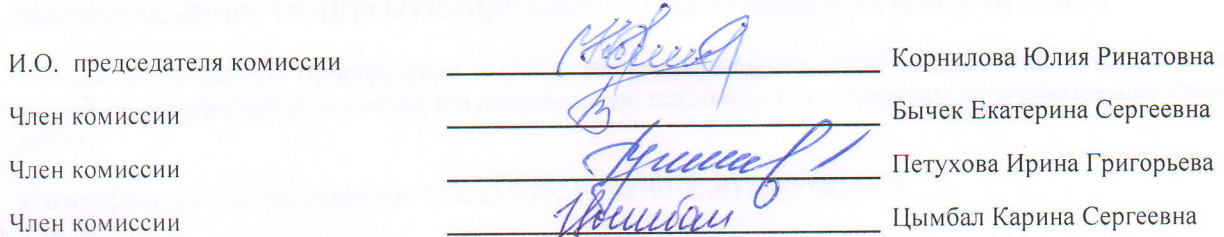 И.О. председателя комиссии Корнилова Юлия Ринатовна
Член комиссии Бычек Екатерина Сергеевна
Член комиссии Петухова Ирина Григорьева
Член комиссии Цымбал Карина Сергеевна